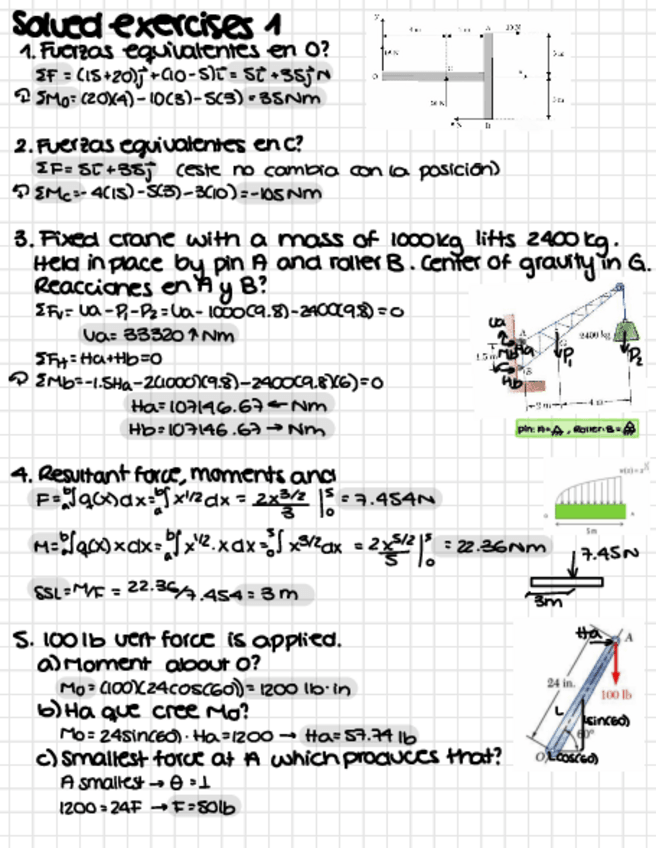 Solved exercises 1
1. Fuerzas equivalentes en O?
ΣF = (15+20)j + (10-5)i = 5i + 35j N
ΣMo = (20)(4) - 10(3) - 5(3) = 35Nm
2. Fuerzas equivalentes en C?
ΣF = 5i + 35j (este no cambia con la posición)
ΣMc = -4(15) - 5(3) - 3(10) = -105 Nm
3. Fixed crane with a mass of 1000kg lifts 2400 kg.
Held in place by pin A and roller B. Center of gravity in G.
Reacciones en A y B?
ΣFv = Va - P1 - P2 = Va - 1000(9.8) - 2400(9.8) = 0
Va = 33320 ↑ Nm
ΣFH = Ha + Hb = 0
ΣMb = -1.5Ha - 2(1000)(9.8) - 2400(9.8)(6) = 0
Ha = 107146.67 ← Nm
Hb = 107146.67 → Nm
Va
A
Ha
Mb
1.5m
B
Hb
P1
2400 kg
P2
2 m
4 m
pin: A = , Roller: B =
4. Resultant force, moments and
F = ∫ q(x)dx = ∫ x^1/2 dx = 2x^3/2 / 3 |5 0 = 7.454N
M = ∫ q(x) x dx = ∫ x^1/2 . x dx = ∫ x^3/2 dx = 2x^5/2 / 5 |5 0 = 22.36Nm
SSL = M/F = 22.36/7.454 = 3 m
5m
7.45N
3m
5. 100 lb vert force is applied.
a) Moment about O?
Mo = (100)(24cos(60)) = 1200 lb·in
b) Ha que cree Mo?
Mo = 24sin(60) · Ha = 1200 → Ha = 57.74 lb
c) Smallest force at A which produces that?
A smallest → θ = ⊥
1200 = 24F → F = 50lb
Ha
A
24 in.
100 lb
L
Lsin(60)
60°
O
Lcos(60)